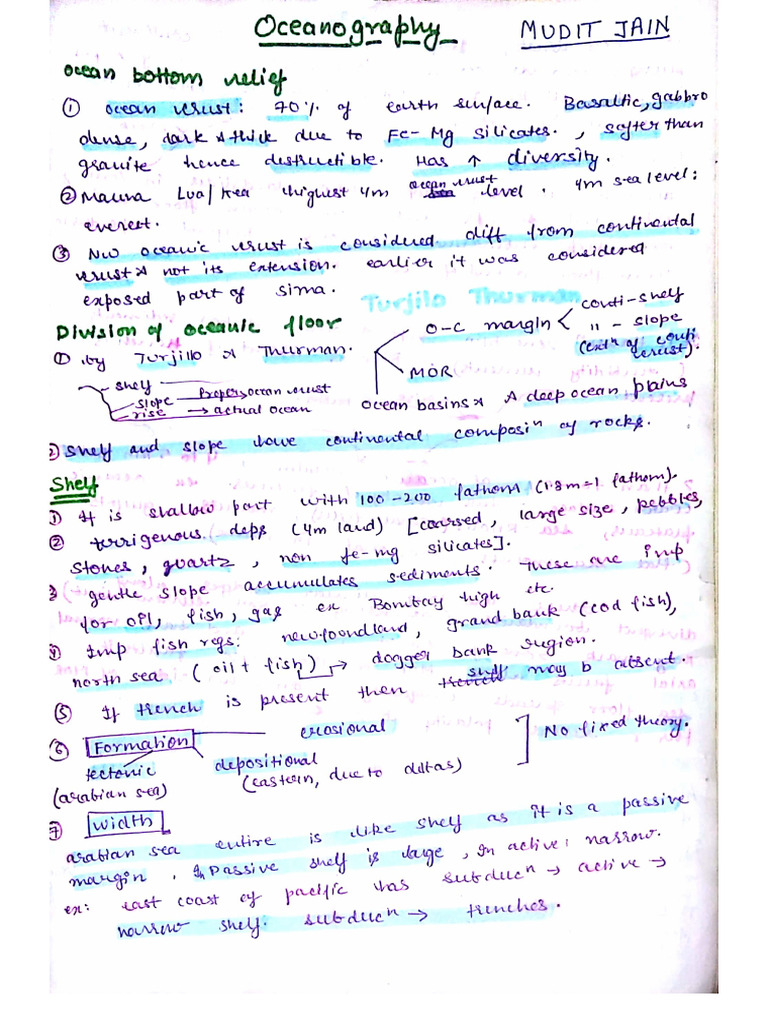 Oceanography MUDIT JAIN
Ocean bottom relief
① Ocean crust: 70% of earth surface. Basaltic, gabbro
dense, dark & thick due to Fe-Mg silicates. , softer than
granite hence destructible. Has ↑ diversity.
② Mauna Lua/Kea highest 4m ocean crust level. 4m sea level:
everest.
③ Nw oceanic crust is considered diff from continental
crust & not its extension. earlier it was considered
exposed part of sima.
Turjilo Thurman
Division of oceanic floor
① by Turjillo & Thurman.
shelf
slope Proper ocean crust
rise → actual ocean
O-C margin < conti-shelf
" - slope
(extn of conti crust).
MOR
Ocean basins & A deep ocean plains
② Shelf and slope have continental composin of rocks.
Shelf
① It is shallow part with 100-200 fathom (1.8m=1 fathom).
② terrigenous deps (4m land) [coarsed, large size, pebbles,
stones, quartz, non fe-mg silicates].
③ gentle slope accumulates sediments. These are imp
for opl, fish, gas ex Bombay high etc.
④ Imp fish regs: newfoundland, grand bank (cod fish),
north sea (oil + fish) → dogger bank region.
⑤ If trench is present then shelf may b absent.
⑥ Formation erosional
tectonic depositional ] No fixed theory.
(arabian sea) (eastern, due to deltas)
⑦ Width
arabian sea entire is like shelf as it is a passive
margin. In Passive shelf is large, In active: narrow.
ex: east coast of pacific has subducn → active →
narrow shelf. subducn → trenches.